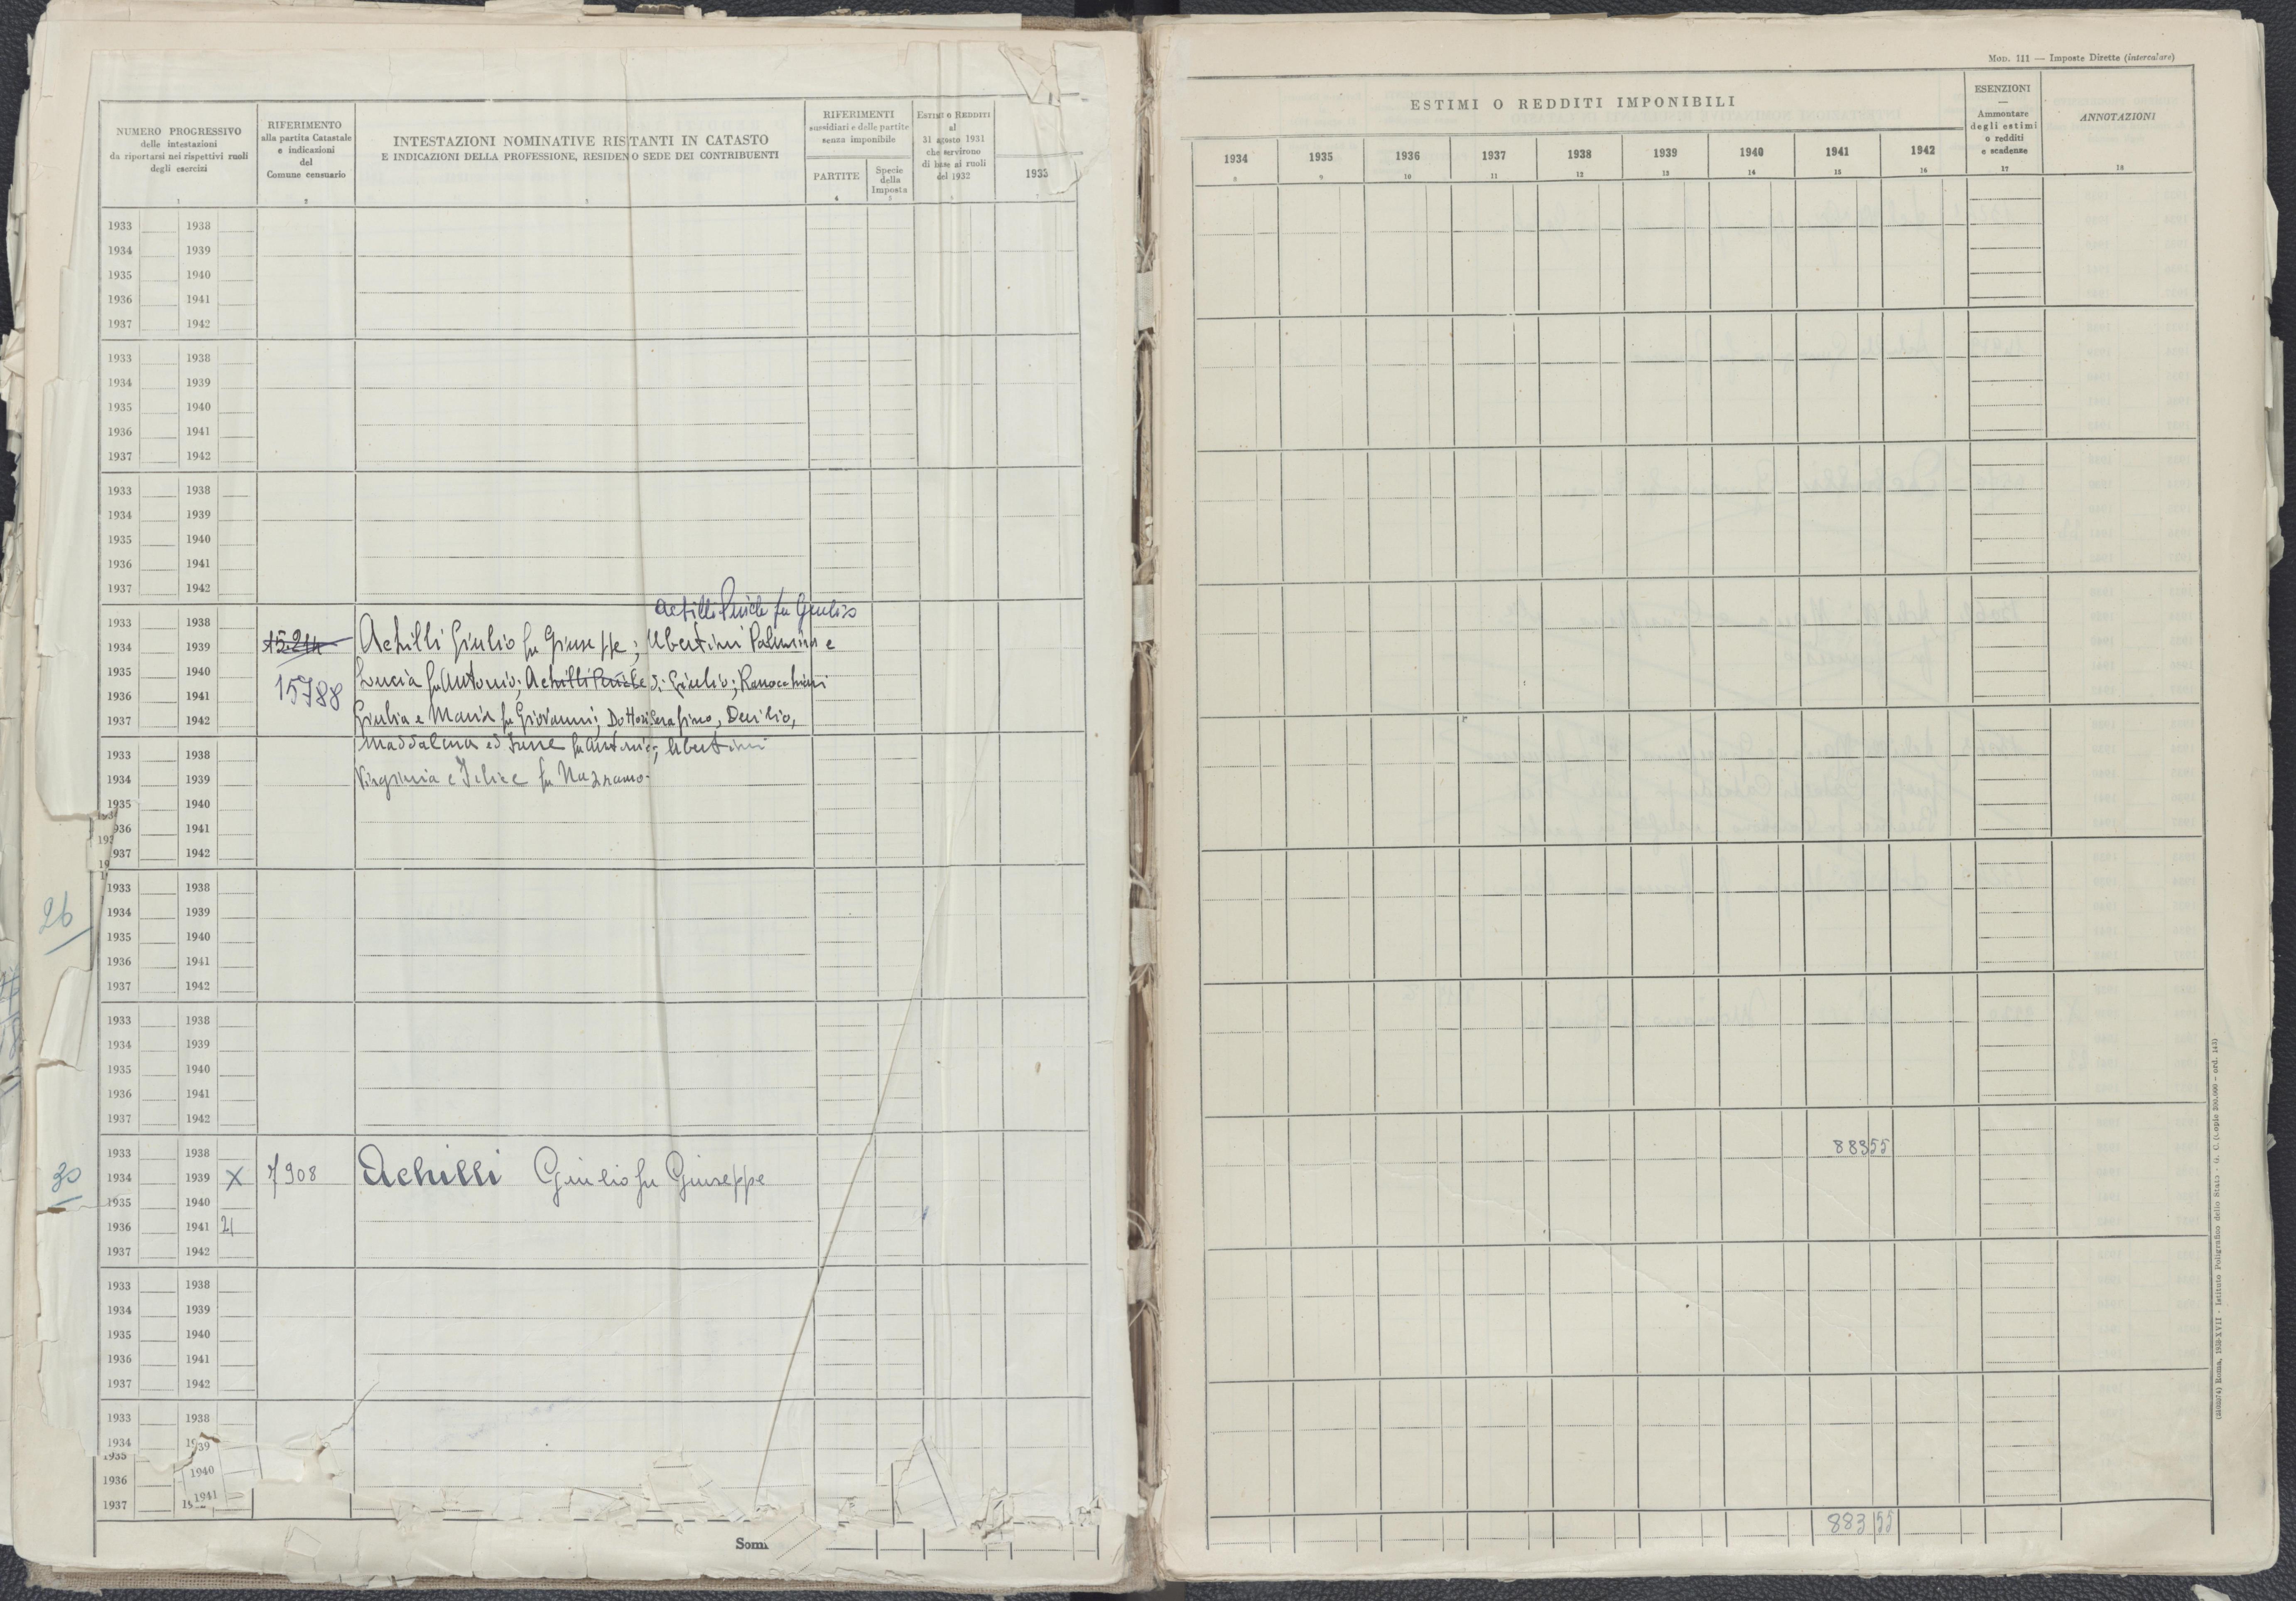 NUMERO PROGRESSIVO
delle intestazioni
da riportarsi nei rispettivi ruoli
degli esercizi
1
RIFERIMENTO
alla partita Catastale
e indicazioni
del
Comune censuario
2
INTESTAZIONI NOMINATIVE RISTANTI IN CATASTO
E INDICAZIONI DELLA PROFESSIONE, RESIDEN O SEDE DEI CONTRIBUENTI
RIFERIMENTI
sussidiari e delle partite
senza imponibile
PARTITE
4
Specie
della
Imposta
ESTIMI O REDDITI
al
31 agosto 1931
che servirono
di base ai ruoli
del 1932
1933
1933 1938
1934 1939
1935 1940
1936 1941
1937 1942
1933 1938
1934 1939
1935 1940
1936 1941
1937 1942
1933 1938
1934 1939
1935 1940
1936 1941
1937 1942
fu Giulio
1933 1938
1934 1939 15214 Achilli Giulio fu Giuseppe; Ubertini Palmira e
1935 1940 Lucia fu Antonio; Achilli di Giulio;
1936 1941 15788
1937 1942 Giulia e Maria fu Giovanni; Dottori Serafino, Duilio,
1933 1938 Maddalena ed fu Antonio; Ubertini
1934 1939 Virginia e Felice fu Nazzareno
1935 1940
36 1941
937 1942
1933 1938
26 1934 1939
1935 1940
1936 1941
1937 1942
1933 1938
1934 1939
1935 1940
1936 1941
1937 1942
1933 1938
30 1934 1939 X 7908 Achilli Giulio fu Giuseppe
1935 1940
1936 1941 21
1937 1942
1933 1938
1934 1939
1935 1940
1936 1941
1937 1942
1933 1938
1934 1939
1935 1940
1936 1941
1937
Som
MOD. 111 — Imposte Dirette (intercalare)
ESTIMI O REDDITI IMPONIBILI
1934 1935 1936 1937 1938 1939 1940 1941 1942
8 9 10 11 12 13 14 15 16
ESENZIONI
—
Ammontare
degli estimi
o redditi
e scadenze
17
ANNOTAZIONI
18
883 55
883 55
(2103274) Roma, 1938-XVII - Istituto Poligrafico dello Stato - G. C. (copie 300.000 - ord. 143)